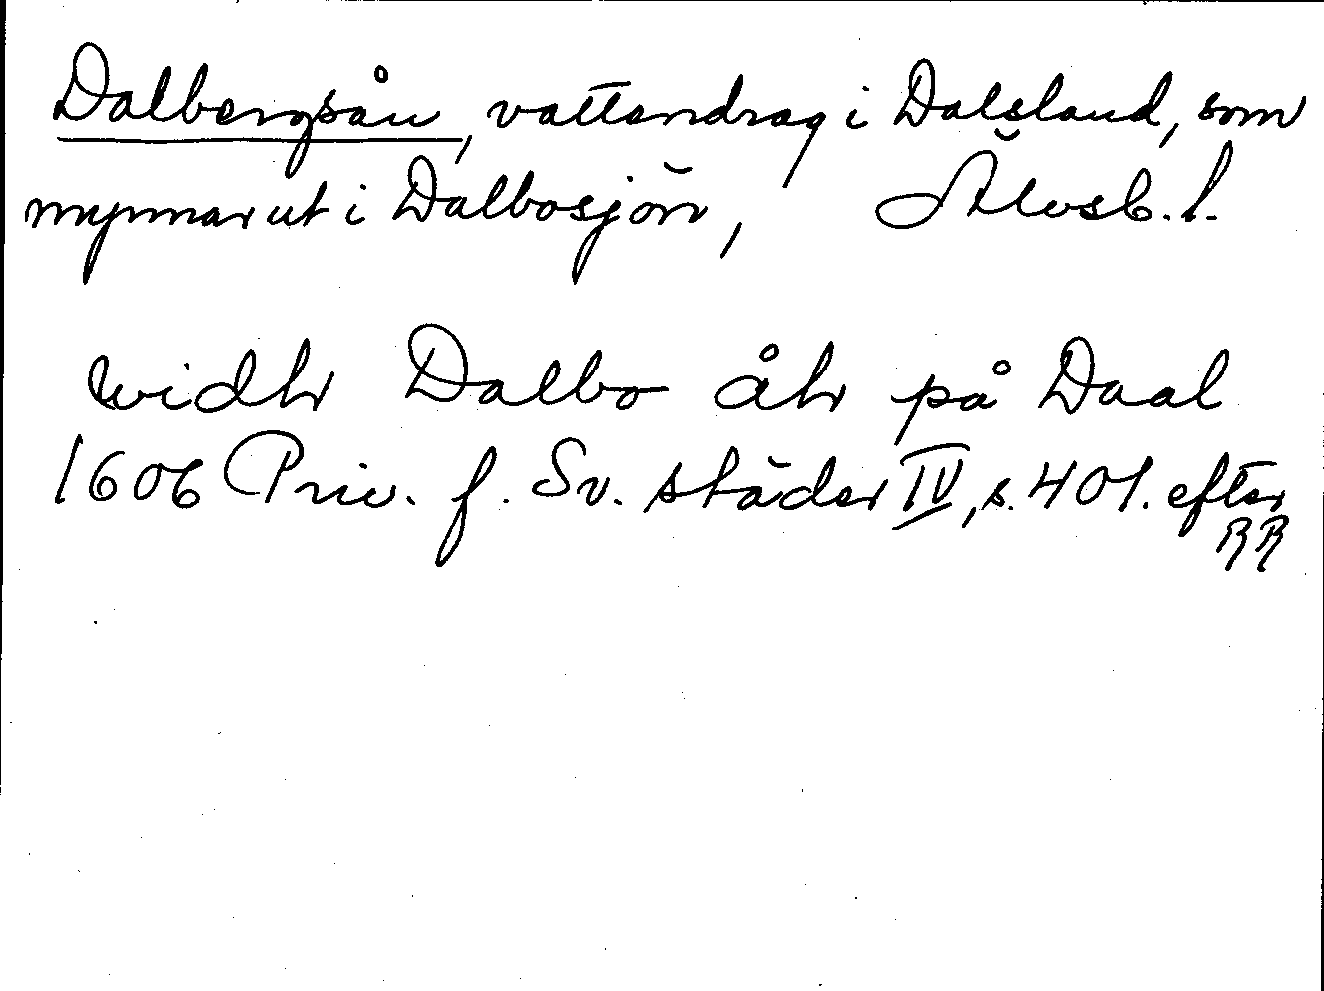 Dalbergsån, vattendrag i Dalsland, som
mynnar ut i Dalbosjön, Älvsb. l.
widhr Dalbo åhr på Daal
1606 Priv. f. Sv. städer IV, s. 401. efter
RR